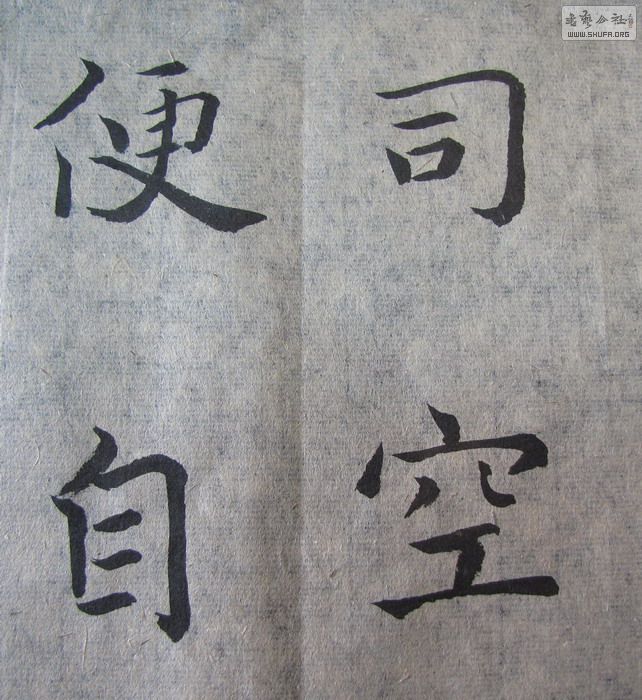 司空
便自
書法公社
WWW.SHUFA.ORG